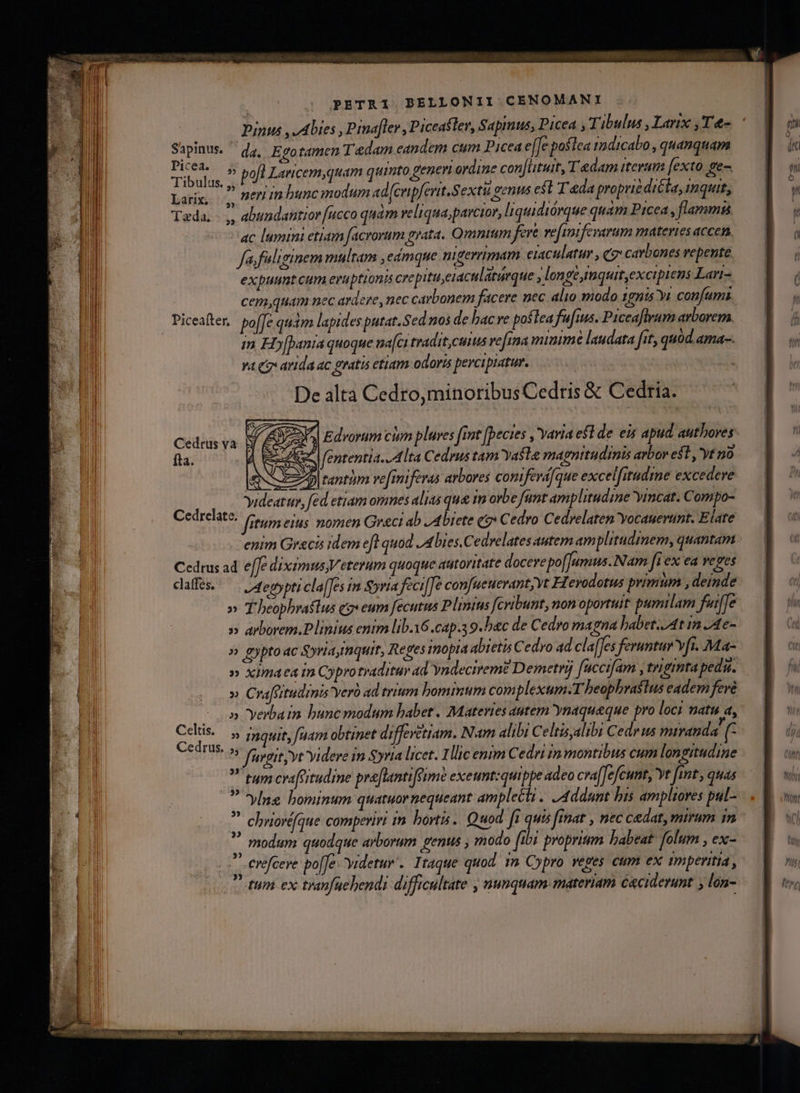 PETRI BELLONII CENOMANI
Pinus, Abies, Pinaster, Piceaster, Sapinus, Picea, Tibulus, Larix, Tæ-
Sapinus. da. Ego tamen Tædam eandem cum Picea esse postea indicabo, quanquam
Picea. » post Laricem, quam quinto generi ordine constituit, Tædam iterum sexto ge-
Tibulus. »
Larix. » neri in hunc modum adscripserit. Sextũ genus est Tæda propriè dicta, inquit,
Tæda. » abundantior succo quàm reliqua, parcior, liquidiórque quàm Picea, flammis
ac lumini etiam sacrorum grata. Omnium ferè resiniferarum materies accen
sa, fuliginem multam, eámque nigerrimam eiaculatur, & carbones repente
expuunt cum eruptionis crepitu, eiaculatúrque, longè, inquit, excipiens Lari-
cem, quam nec ardere, nec carbonem facere nec alio modo ignis vi consumi
Piceaster. posse quàm lapides putat. Sed nos de hac re postea fusius. Piceastrum arborem
in Hyspania quoque nasci tradit, cuius resina minimè laudata sit, quòd ama-
ra & arida ac gratis etiam odoris percipiatur.
De alta Cedro, minoribus Cedris & Cedria.
Cedrus va Cedrorum cùm plures sint species, varia est de eis apud authores
sta. sententia. Alta Cedrus tam vastæ magnitudinis arbor est, vt nõ
tantùm resiniferas arbores coniferásque excelsitudine excedere
videatur, sed etiam omnes alias quæ in orbe sunt amplitudine vincat. Compo-
Cedrelate. situm eius nomen Græci ab Abiete & Cedro Cedrelaten vocauerunt. Elate
enim Græcis idem est quod Abies. Cedrelates autem amplitudinem, quantam
Cedrus ad esse diximus, Veterum quoque autoritate docere possumus. Nam si ex ea reges
classes. Aegypti classes in Syria fecisse consueuerant, vt Herodotus primùm, deinde
» Theophrastus & eum secutus Plinius scribunt, non oportuit pumilam fuisse
» arborem. Plinius enim lib.16.cap.39. hæc de Cedro magna habet. At in Ae-
» gypto ac Syria, inquit, Reges inopia abietis Cedro ad classes feruntur vsi. Ma-
» xima ea in Cypro traditur ad vndeciremẽ Demetrij succisam, triginta pedũ.
» Crassitudinis verò ad trium hominum complexum. Theophrastus eadem ferè
» verba in hunc modum habet. Materies autem vnaquæque pro loci natu a,
Celtis. » inquit, suam obtinet differẽtiam. Nam alibi Celtis, alibi Cedrus miranda (-
Cedrus. » surgit, vt videre in Syria licet. Illic enim Cedri in montibus cum longitudine
» tum crassitudine præstantissimè exeunt: quippe adeo crassescunt, vt sint, quas
» vlnæ hominum quatuor nequeant amplecti. Addunt his ampliores pul-
» chriorésque comperiri in hortis. Quod si quis sinat, nec cædat, mirum in
» modum quodque arborum genus, modo sibi proprium habeat solum, ex-
» crescere posse videtur. Itaque quod in Cypro reges cum ex imperitia,
» tum ex transuehendi difficultate, nunquam materiam cæciderunt, lon-